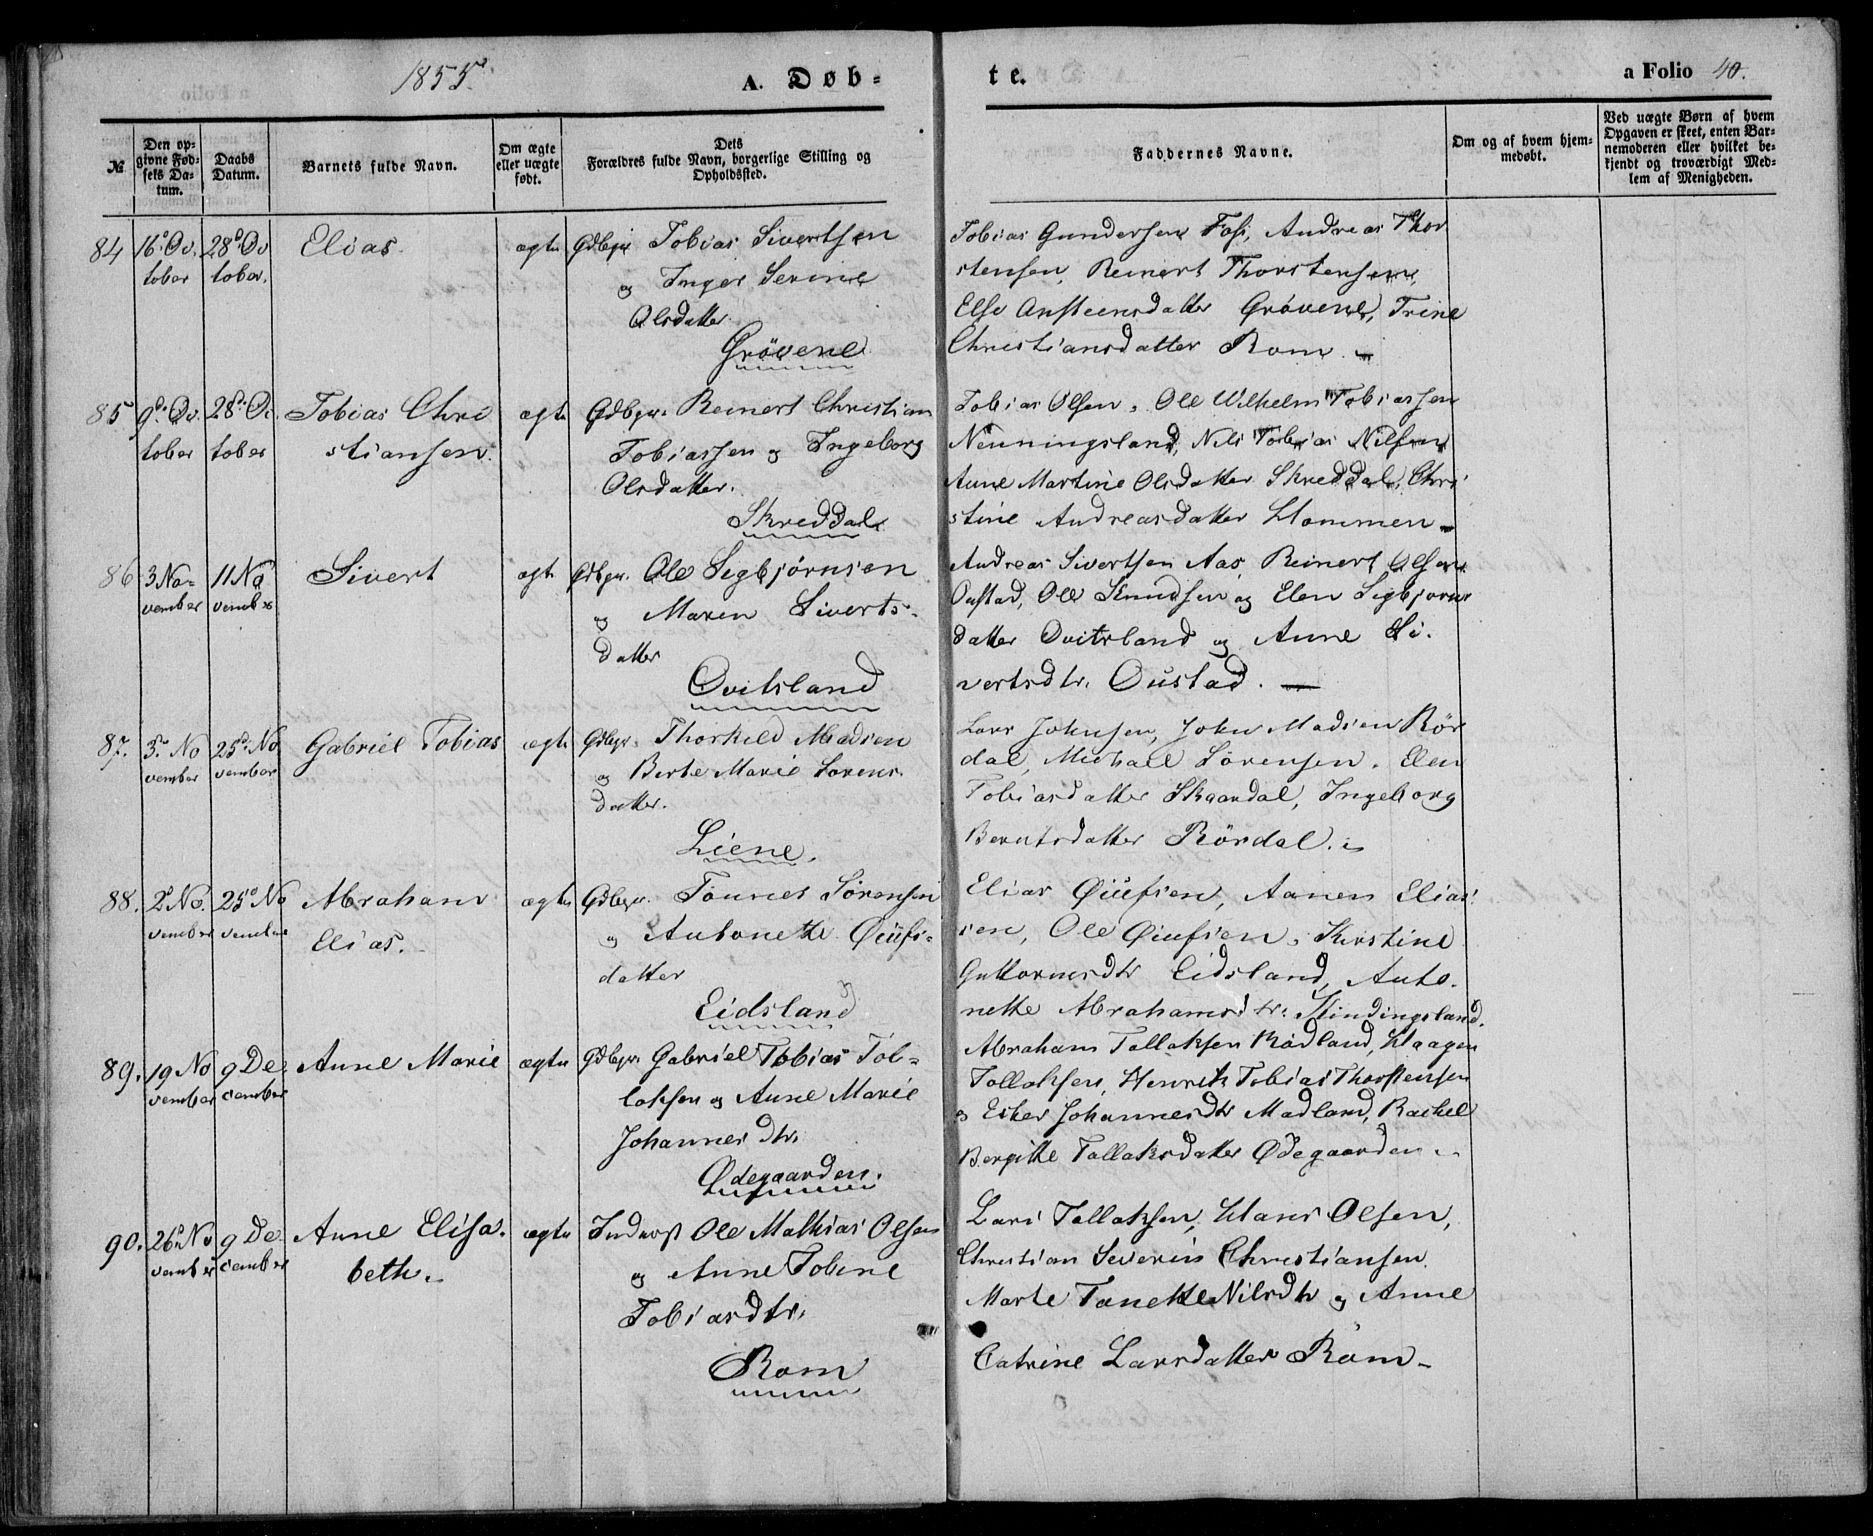 1855.
A. Døb-
te.
a Folio 40.
№
Den op-
givne Fød-
sels Da-
tum.
Daabs
Datum.
Barnets fulde Navn.
Om ægte
eller uægte
født.
Dets
Forældres fulde Navn, borgerlige Stilling og
Opholdssted.
Faddernes Navne.
Om og af hvem hjem-
medøbt.
Ved uægte Børn af hvem
Opgaven er skeet, enten Bar-
nemoderen eller hvilket be-
kjendt og troværdigt Med-
lem af Menigheden.
84
16 Oc
tober
28 Oc
tober.
Elias.
ægte
Gdbgr Tobias Sivertsen
og Inger Serine
Olsdatter
Grövene
Tobias Gundersen Fosi, Andreas Thor
stensen, Reinert Thorstensen,
Else Ansteensdatter Grövene, Trine
Christiansdatter Rom
85
9 Oc
tober
28 Oc
tober
Tobias Chri
stiansen.
ægte
Gdbgr. Reinert Christian
Tobiassen og Ingeborg
Olsdatter.
Skreddal
Tobias Olsen, Ole Wilhelm Tobiassen
Nenningsland, Nils Tobias Nilsen
Anne Martine Olsdatter Skreddal, Chri
stine Andreasdatter Hommen
86
3 No-
vember
11 No
vember
Sivert
ægte
Gdbgr. Ole Segbjörnsen
og Maren Siverts-
datter
Qvitsland
Andreas Sivertsen Aas, Reinert Olsen
Oustad, Ole Knudsen og Elen Segbjorns
datter Qvitsland og Anne Si-
vertsdtr. Oustad.
87.
3 No
vember
25 No
vember
Gabriel Tobias
ægte
Gdbgr. Thorkild Madsen
og Berte Marie Sorens
datter.
Liene.
Lars Johnsen, John Madsen Rör
dal, Michael Sörensen, Elen
Tobiasdatter Skaardal, Ingeborg
Berntsdatter Rördal.
88.
2 No.
vember
25 No
vember
Abraham
Elias.
ægte
Gdbgr. Tönnes Sörensen
og Antonette Øiufs-
datter
Eidsland
Elias Øiufsen, Aanen Elias
sen, Ole Øiufsen, Kirstine
Guttormsdtr Eidsland, Anto-
nette Abrahamsdtr. Stindingsland.
89.
19 No
vember
9 De
cember
Anne Marie
ægte
Gdbgr. Gabriel Tobias Tol-
laksen og Anne Marie
Johannesdtr.
Ødegaarden.
Abraham Tollaksen Rödland, Haagen
Tollaksen, Henrik Tobias Thorstensen
og Ester Johannesdtr Madland, Rachel
Bergitte Tollaksdatter Ødegaarden
90.
26 No
vember
9 De
cember
Anne Elisa-
beth
ægte
Inderst Ole Mathias Olsen
og Anne Tobine
Tobiasdtr.
Rom
Lars Tollaksen, Hans Olsen,
Christian Severin Christiansen
Marte Tonette Nilsdtr og Anne
Catrine Larsdatter Rom